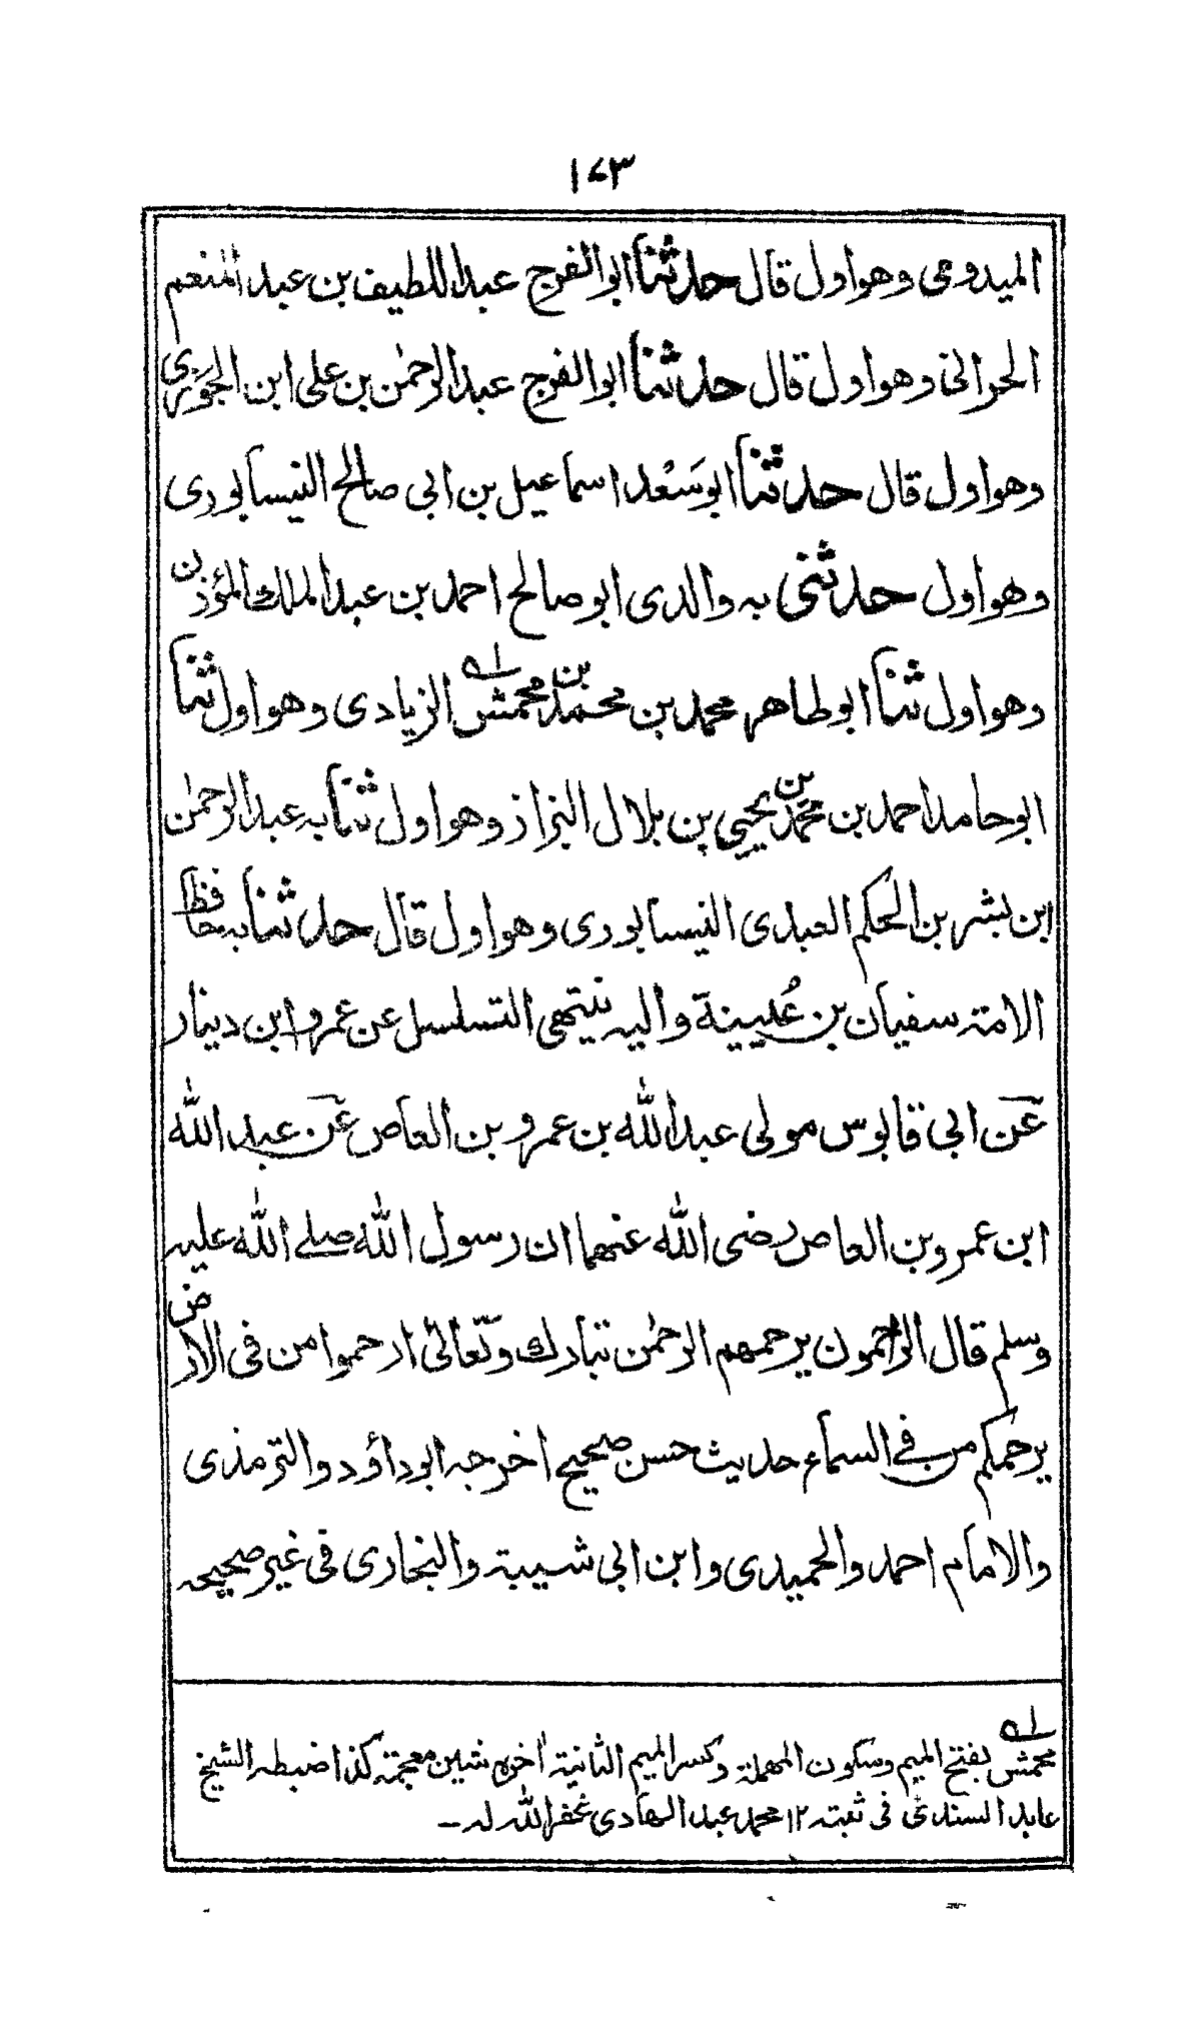 ١٧٣
الميدومي وهو اول قال حدثنا ابو الفرج عبد اللطيف بن عبد المنعم
الحراني وهو اول قال حدثنا ابو الفرج عبد الرحمٰن بن علی ابن الجَوزی
وهو اول قال حدثنا ابو سَعْد اسماعيل بن ابی صالح النيسابوری
وهو اول حدثنی به والدی ابو صالح احمد بن عبد الملك المؤذن
وهو اول ثنا ابو طاهر محمد بن محمد بن محمش له الزيادی وهو اول ثنا
ابو حامد احمد بن محمد بن يحيي بن بلال البزاز وهو اول ثنا به عبد الرحمٰن
ابن بشر بن الحكم العبدی النيسابوری وهو اول قال حدثنا به حافظ
الامة سفيان بن عُيينة واليه ينتهی التسلسل عن عمرو ابن دينار
عَن ابی قابوس مولی عبد الله بن عمرو بن العاص عَن عبد الله
ابن عمرو بن العاص رضی الله عنهما ان رسول الله صلے الله عليه
وسلم قال الراحمون يرحمهم الرحمٰن تبارك وتعالیٰ ارحموا من فی الارض
يرحمكم من فے السماء حديث حسن صحيح اخرجه ابو داؤد والترمذی
والامام احمد والحميدی وابن ابی شيبة والبخاری فی غير صحيحه
له
محمش بفتح الميم وسكون المهملة وكسر الميم الثانية اخره شين معجمة كذا ضبطه الشيخ
عابد السندیؒ فی ثبته ١٢ محمد عبد الهادی غفر الله له ــ